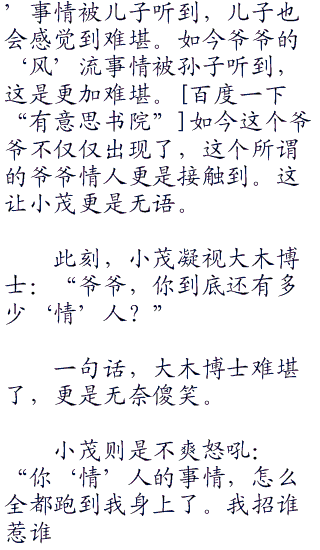 ’事情被儿子听到，儿子也
会感觉到难堪。如今爷爷的
‘风’流事情被孙子听到，
这是更加难堪。[百度一下
“有意思书院”]如今这个爷
爷不仅仅出现了，这个所谓
的爷爷情人更是接触到。这
让小茂更是无语。
此刻，小茂凝视大木博
士：“爷爷，你到底还有多
少‘情’人？”
一句话，大木博士难堪
了，更是无奈傻笑。
小茂则是不爽怒吼：
“你‘情’人的事情，怎么
全都跑到我身上了。我招谁
惹谁